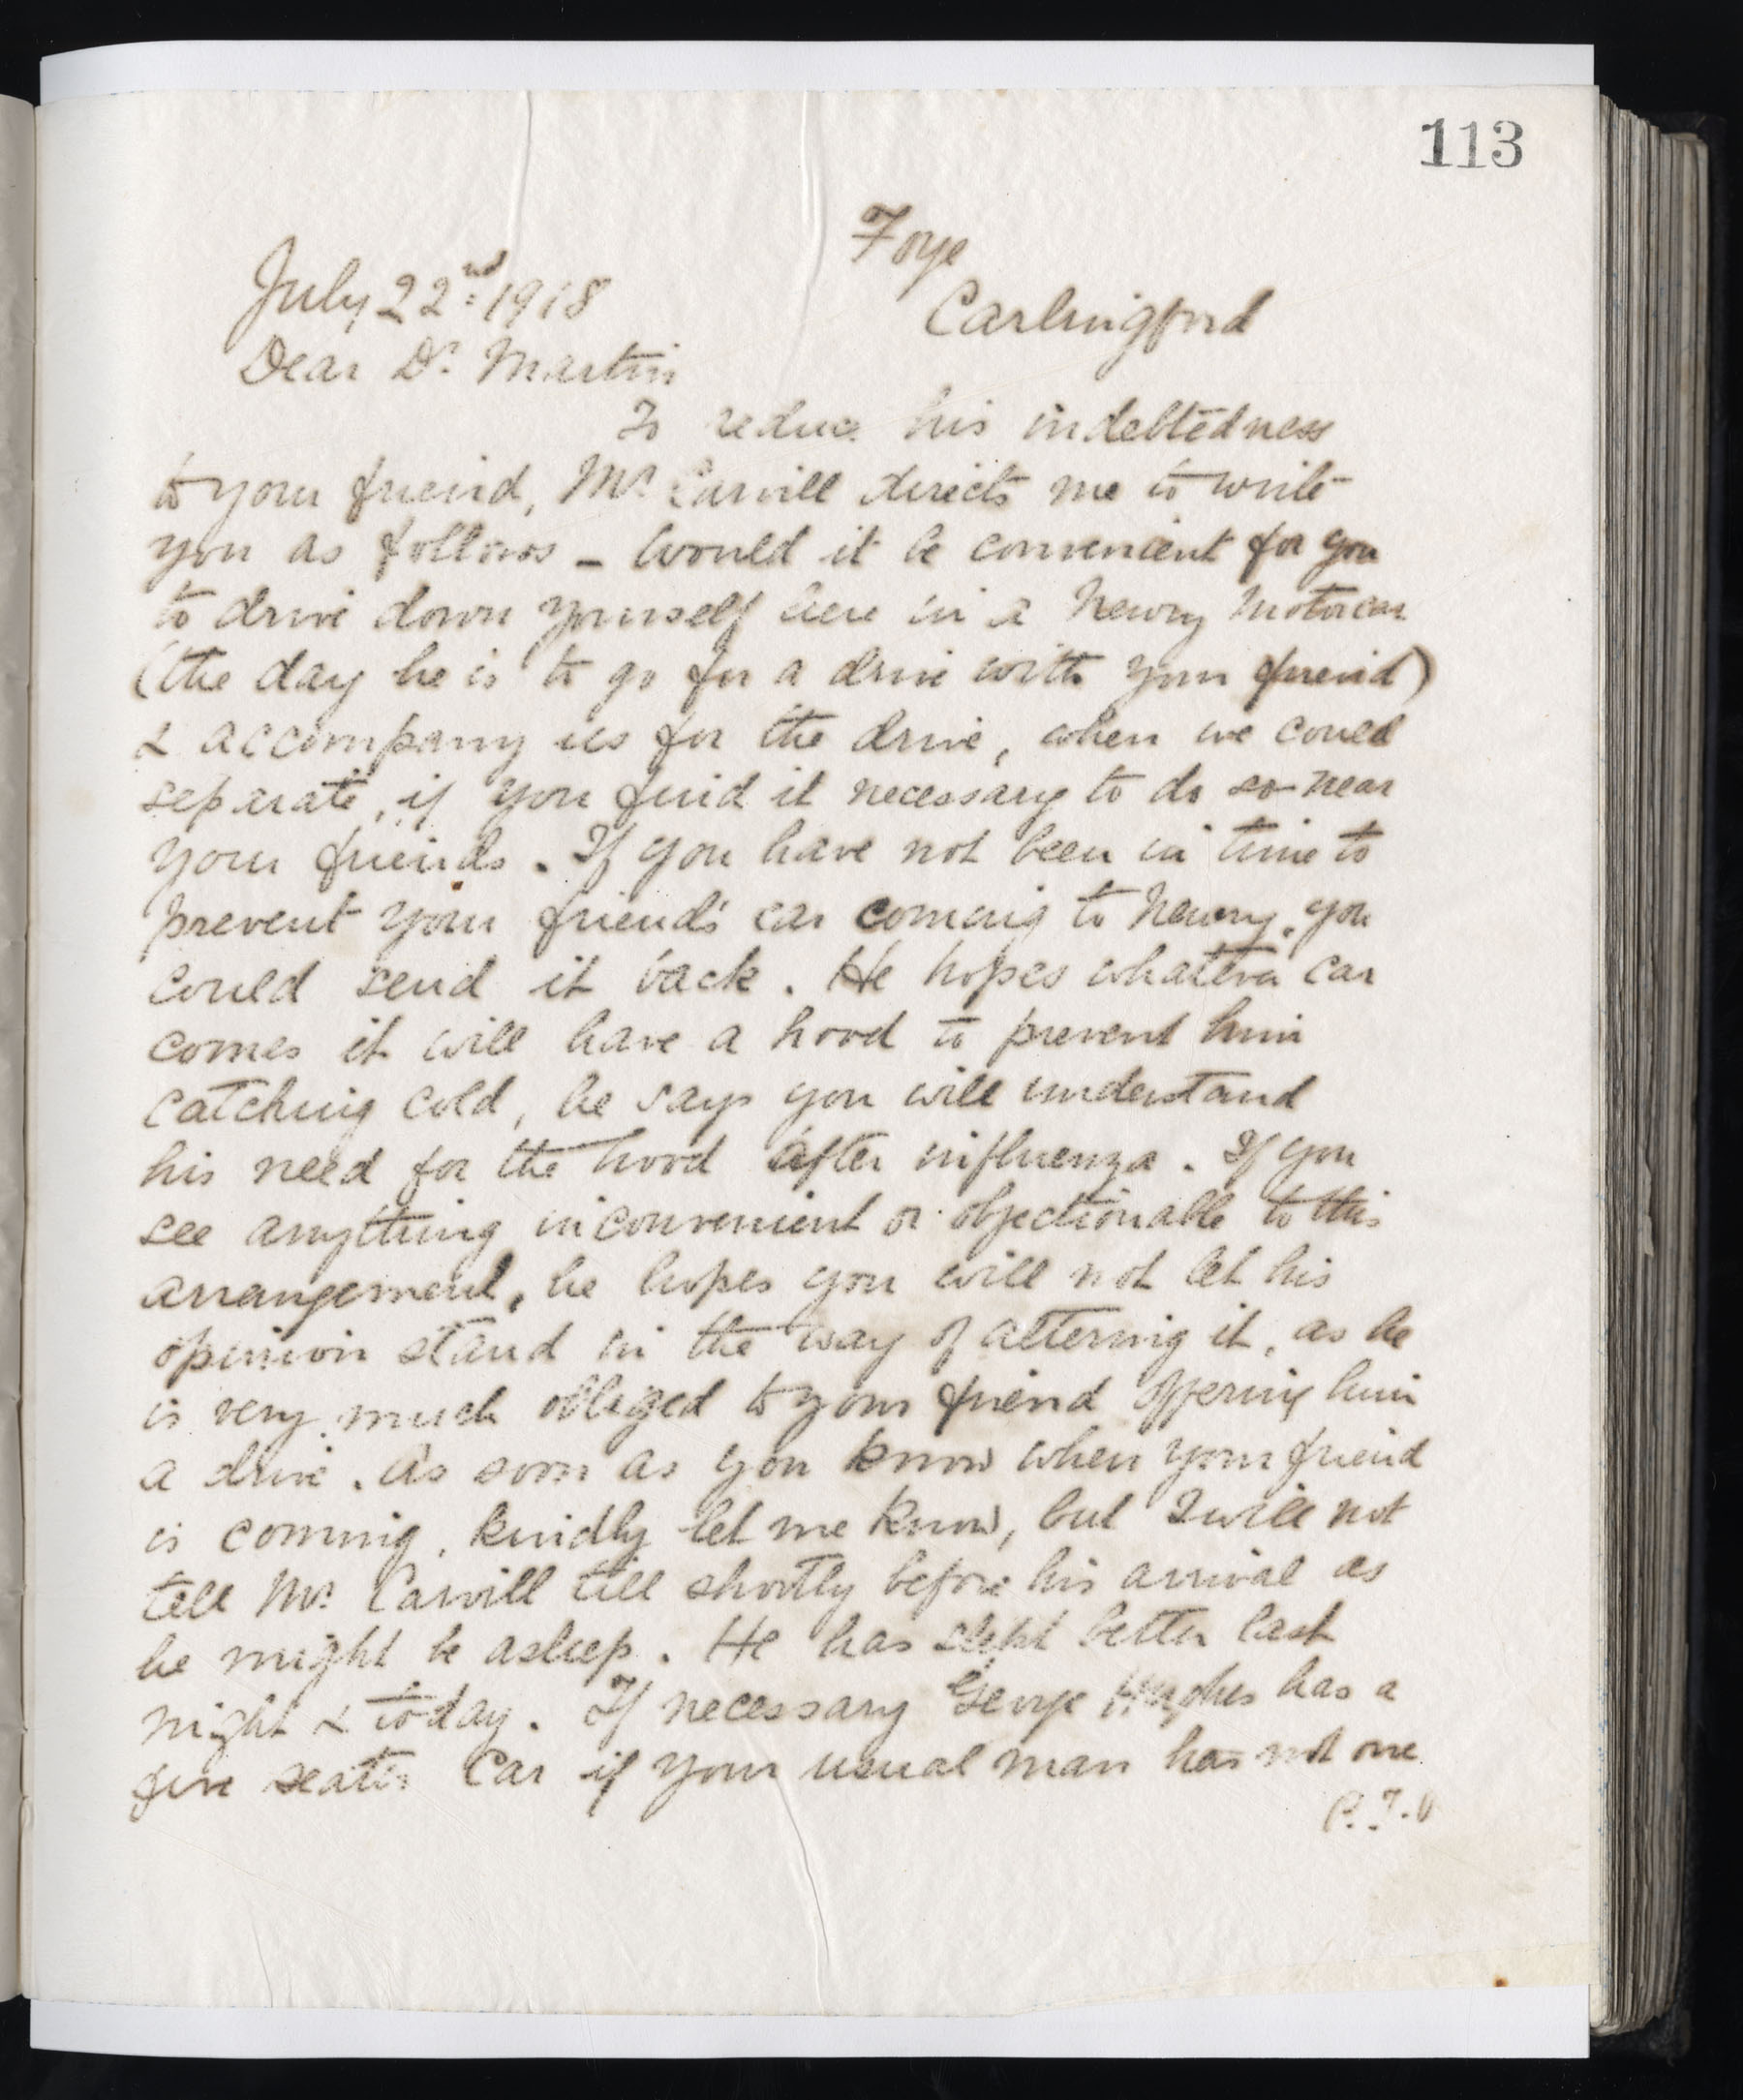 113
Foye
July 22nd 1918
Carlingford
Dear Dr. Martin
To reduce his indebtedness
to your friend, Mr Carvill directs me to write
you as follows - Would it be convenient for you
to drive down yourself here in a Newry Motorcar
(the day he is to go for a drive with your friend)
& accompany us for the drive, when we could
separate, if you find it necessary to do so near
your friends. If you have not been in time to
prevent your friend's car coming to Newry, you
could send it back. He hopes whatever car
comes it will have a hood to prevent him
catching cold, he says you will understand
his need for the hood after influenza. If you
see anything inconvenient or objectionable to this
arrangement, he hopes you will not let his
opinion stand in the way of altering it, as he
is very much obliged to your friend offering him
a drive. As soon as you know when your friend
is coming, kindly let me know, but I will not
tell Mr. Carvill till shortly before his arrival as
he might be asleep. He has slept better last
night & today. If necessary George Hughes has a
five seater Car if your usual man has not one.
P.T.O